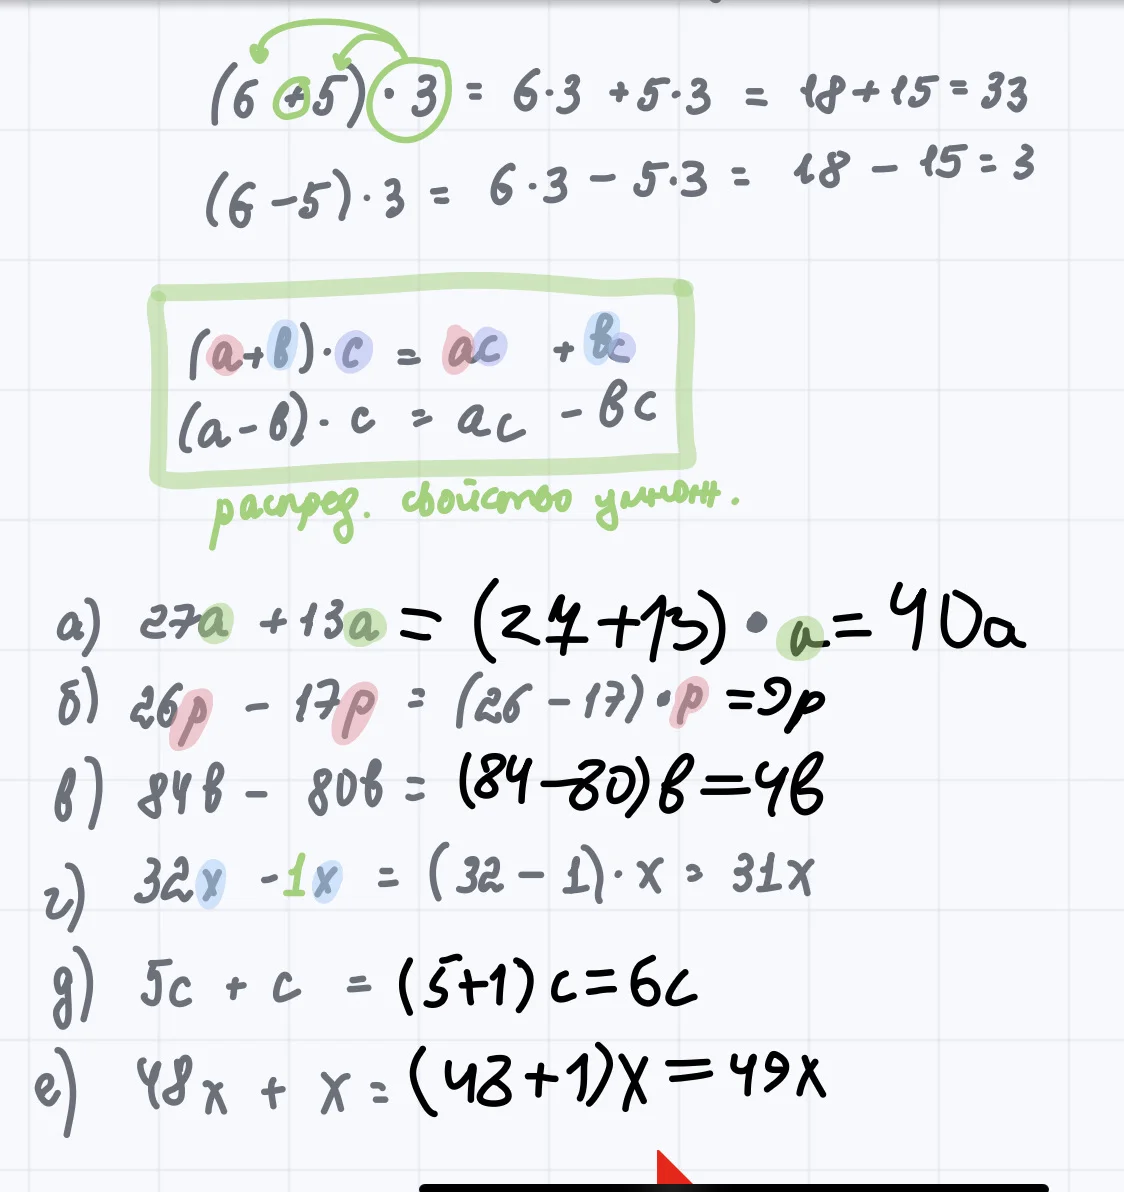 (6 + 5) · 3 = 6·3 + 5·3 = 18 + 15 = 33
(6 - 5) · 3 = 6·3 - 5·3 = 18 - 15 = 3
(a + в) · c = ac + вc
(a - в) · c = ac - вc
распред. свойство умнож.
а) 27a + 13a = (27 + 13) · a = 40a
б) 26p - 17p = (26 - 17) · p = 9p
в) 84в - 80в = (84 - 80) в = 4в
г) 32x - 1x = (32 - 1) · x = 31x
д) 5c + c = (5 + 1) c = 6c
е) 48x + x = (48 + 1) x = 49x